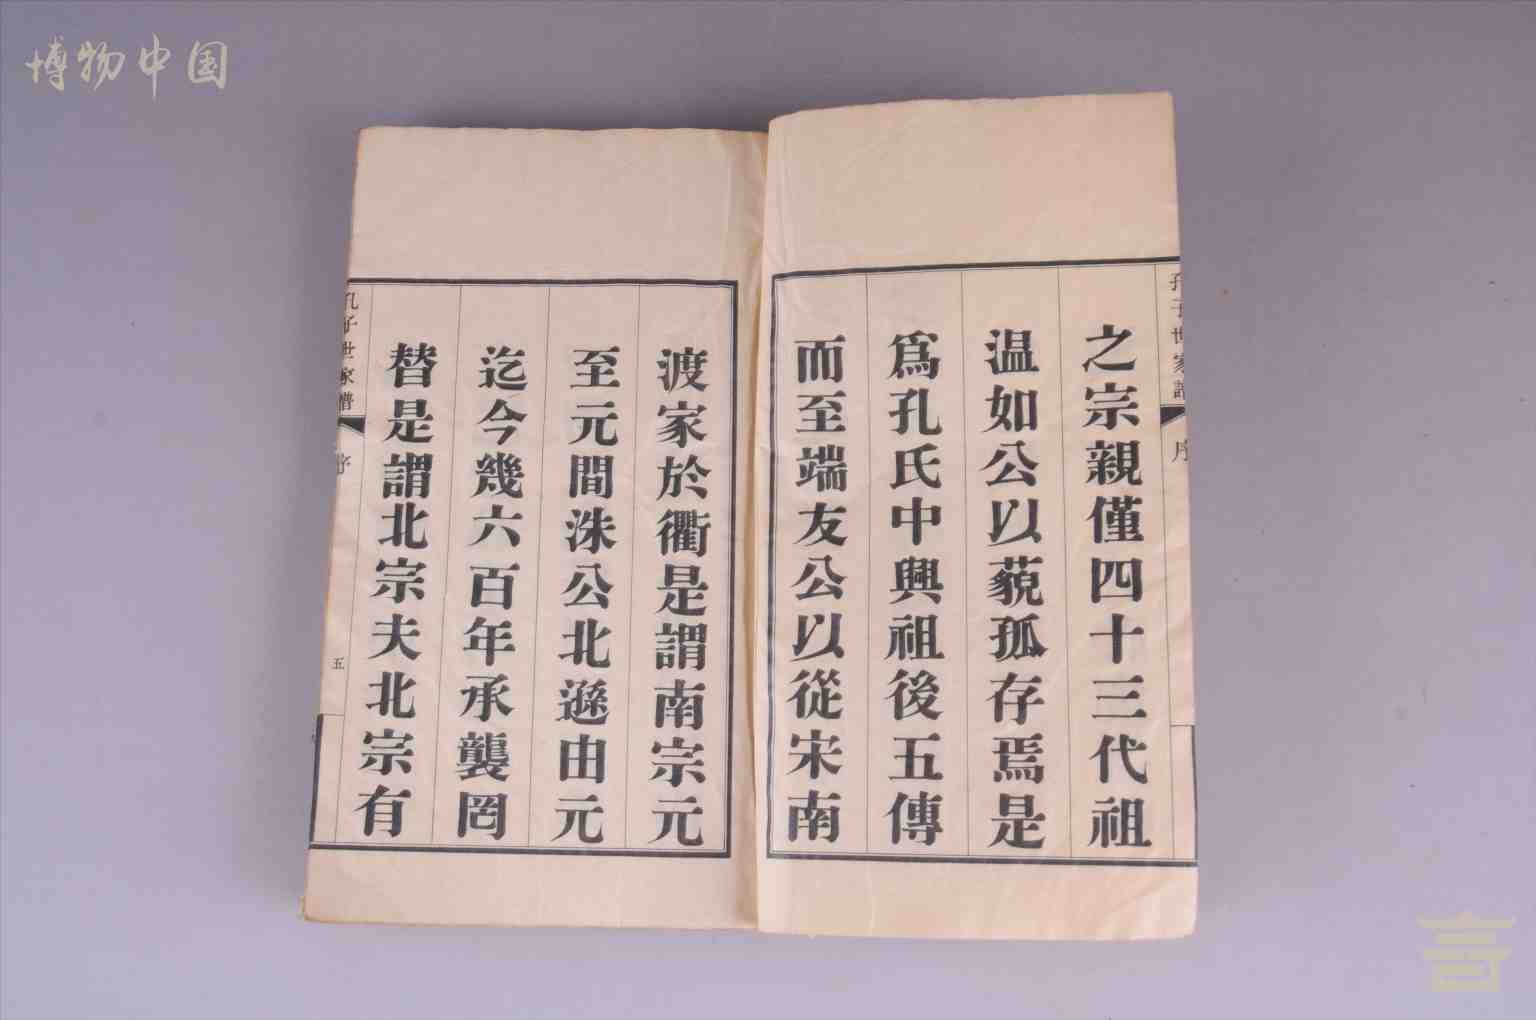 博物中国
孔子世家譜
序
之宗親僅四十三代祖
温如公以藐孤存焉是
爲孔氏中興祖後五傳
而至端友公以從宋南
渡家於衢是謂南宗元
至元間洙公北遜由元
迄今幾六百年承襲罔
替是謂北宗夫北宗有
孔子世家譜
序
五